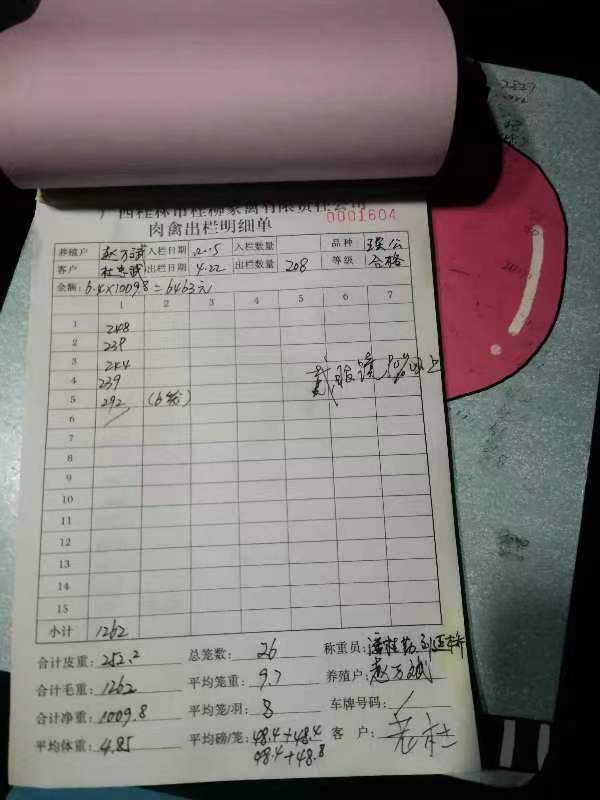 广西桂林市桂柳家禽有限责任公司
0001604
肉禽出栏明细单
养殖户 赵万武 入栏日期 2.5 入栏数量 品种
客户 杜忠武 出栏日期 4.22 出栏数量 208 等级 合格
金额: 6.4×1009.8=6463元
1 2 3 4 5 6 7
1 248
2 239
3 244
4 239
5 292 (6笼)
戴眼镜 80%以上
6
7
8
9
10
11
12
13
14
15
小计 1262
合计皮重: 252.2 总笼数: 26 称重员:
合计毛重: 1262 平均笼重: 9.7 养殖户: 赵万武
合计净重: 1009.8 平均笼/羽: 8 车牌号码:
平均体重: 4.85 平均磅/笼: 48.4+48.4 客户: 老杜
48.4+48.8